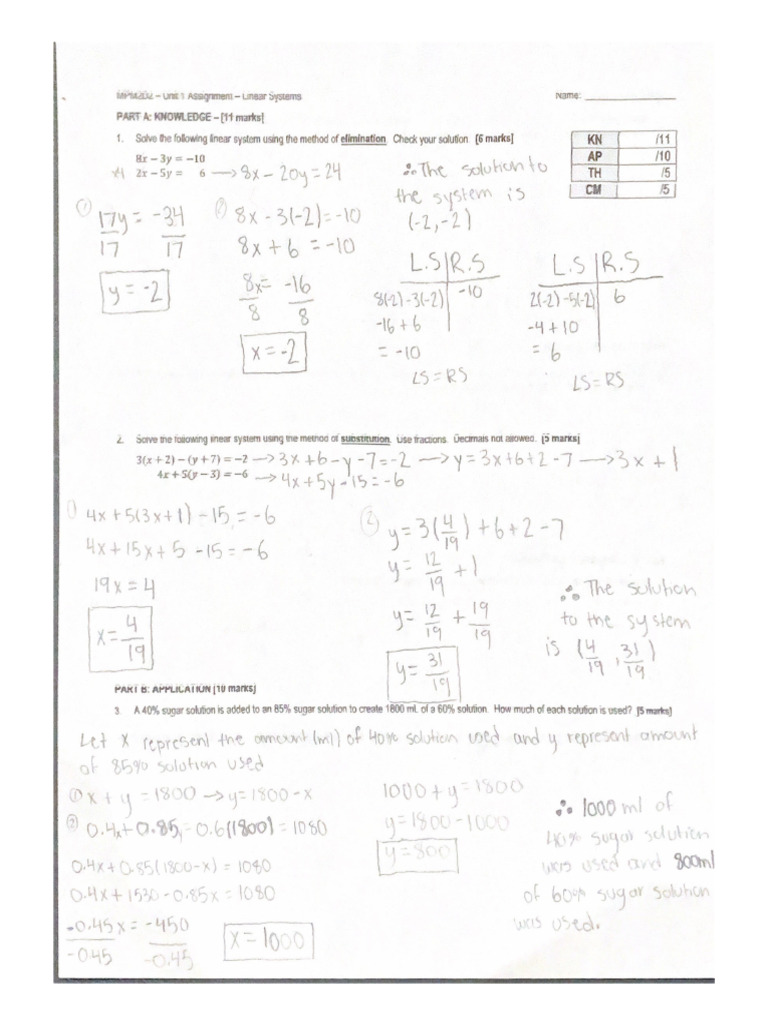 MPM2D2 – Unit 1 Assignment – Linear Systems Name: ____________
PART A: KNOWLEDGE – [11 marks]
1. Solve the following linear system using the method of elimination. Check your solution. [6 marks]
KN /11
AP /10
TH /5
CM /5
8x – 3y = –10
x4 2x – 5y = 6 → 8x - 20y = 24
∴ The solution to
the system is
(-2,-2)
① 17y = -34
17 17
y = -2
② 8x - 3(-2) = -10
8x + 6 = -10
8x = -16
8 8
x = -2
L.S | R.S
8(-2) - 3(-2) | -10
-16 + 6
= -10
LS = RS
L.S | R.S
2(-2) - 5(-2) | 6
-4 + 10
= 6
LS = RS
2. Solve the following linear system using the method of substitution. Use fractions. Decimals not allowed. [5 marks]
3(x + 2) – (y + 7) = –2 → 3x + 6 - y - 7 = -2 → y = 3x + 6 + 2 - 7 → 3x + 1
4x + 5(y – 3) = –6 → 4x + 5y - 15 = -6
① 4x + 5(3x + 1) - 15 = -6
4x + 15x + 5 - 15 = -6
19x = 4
x = 4/19
② y = 3(4/19) + 6 + 2 - 7
y = 12/19 + 1
y = 12/19 + 19/19
y = 31/19
∴ The solution
to the system
is (4/19, 31/19)
PART B: APPLICATION [10 marks]
3. A 40% sugar solution is added to an 85% sugar solution to create 1800 mL of a 60% solution. How much of each solution is used? [5 marks]
Let x represent the amount (ml) of 40% solution used and y represent amount
of 85% solution used
① x + y = 1800 → y = 1800 - x
② 0.4x + 0.85y = 0.6(1800) = 1080
0.4x + 0.85(1800 - x) = 1080
0.4x + 1530 - 0.85x = 1080
-0.45x = -450
-0.45 -0.45
x = 1000
1000 + y = 1800
y = 1800 - 1000
y = 800
∴ 1000 ml of
40% sugar solution
was used and 800ml
of 60% sugar solution
was used.